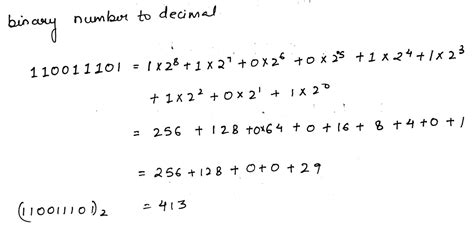 binary number to decimal
110011101 = 1×2⁸ + 1×2⁷ + 0×2⁶ + 0×2⁵ + 1×2⁴ + 1×2³
+ 1×2² + 0×2¹ + 1×2⁰
= 256 + 128 + 0×64 + 0 + 16 + 8 + 4 + 0 + 1
= 256 + 128 + 0 + 0 + 29
(110011101)₂ = 413